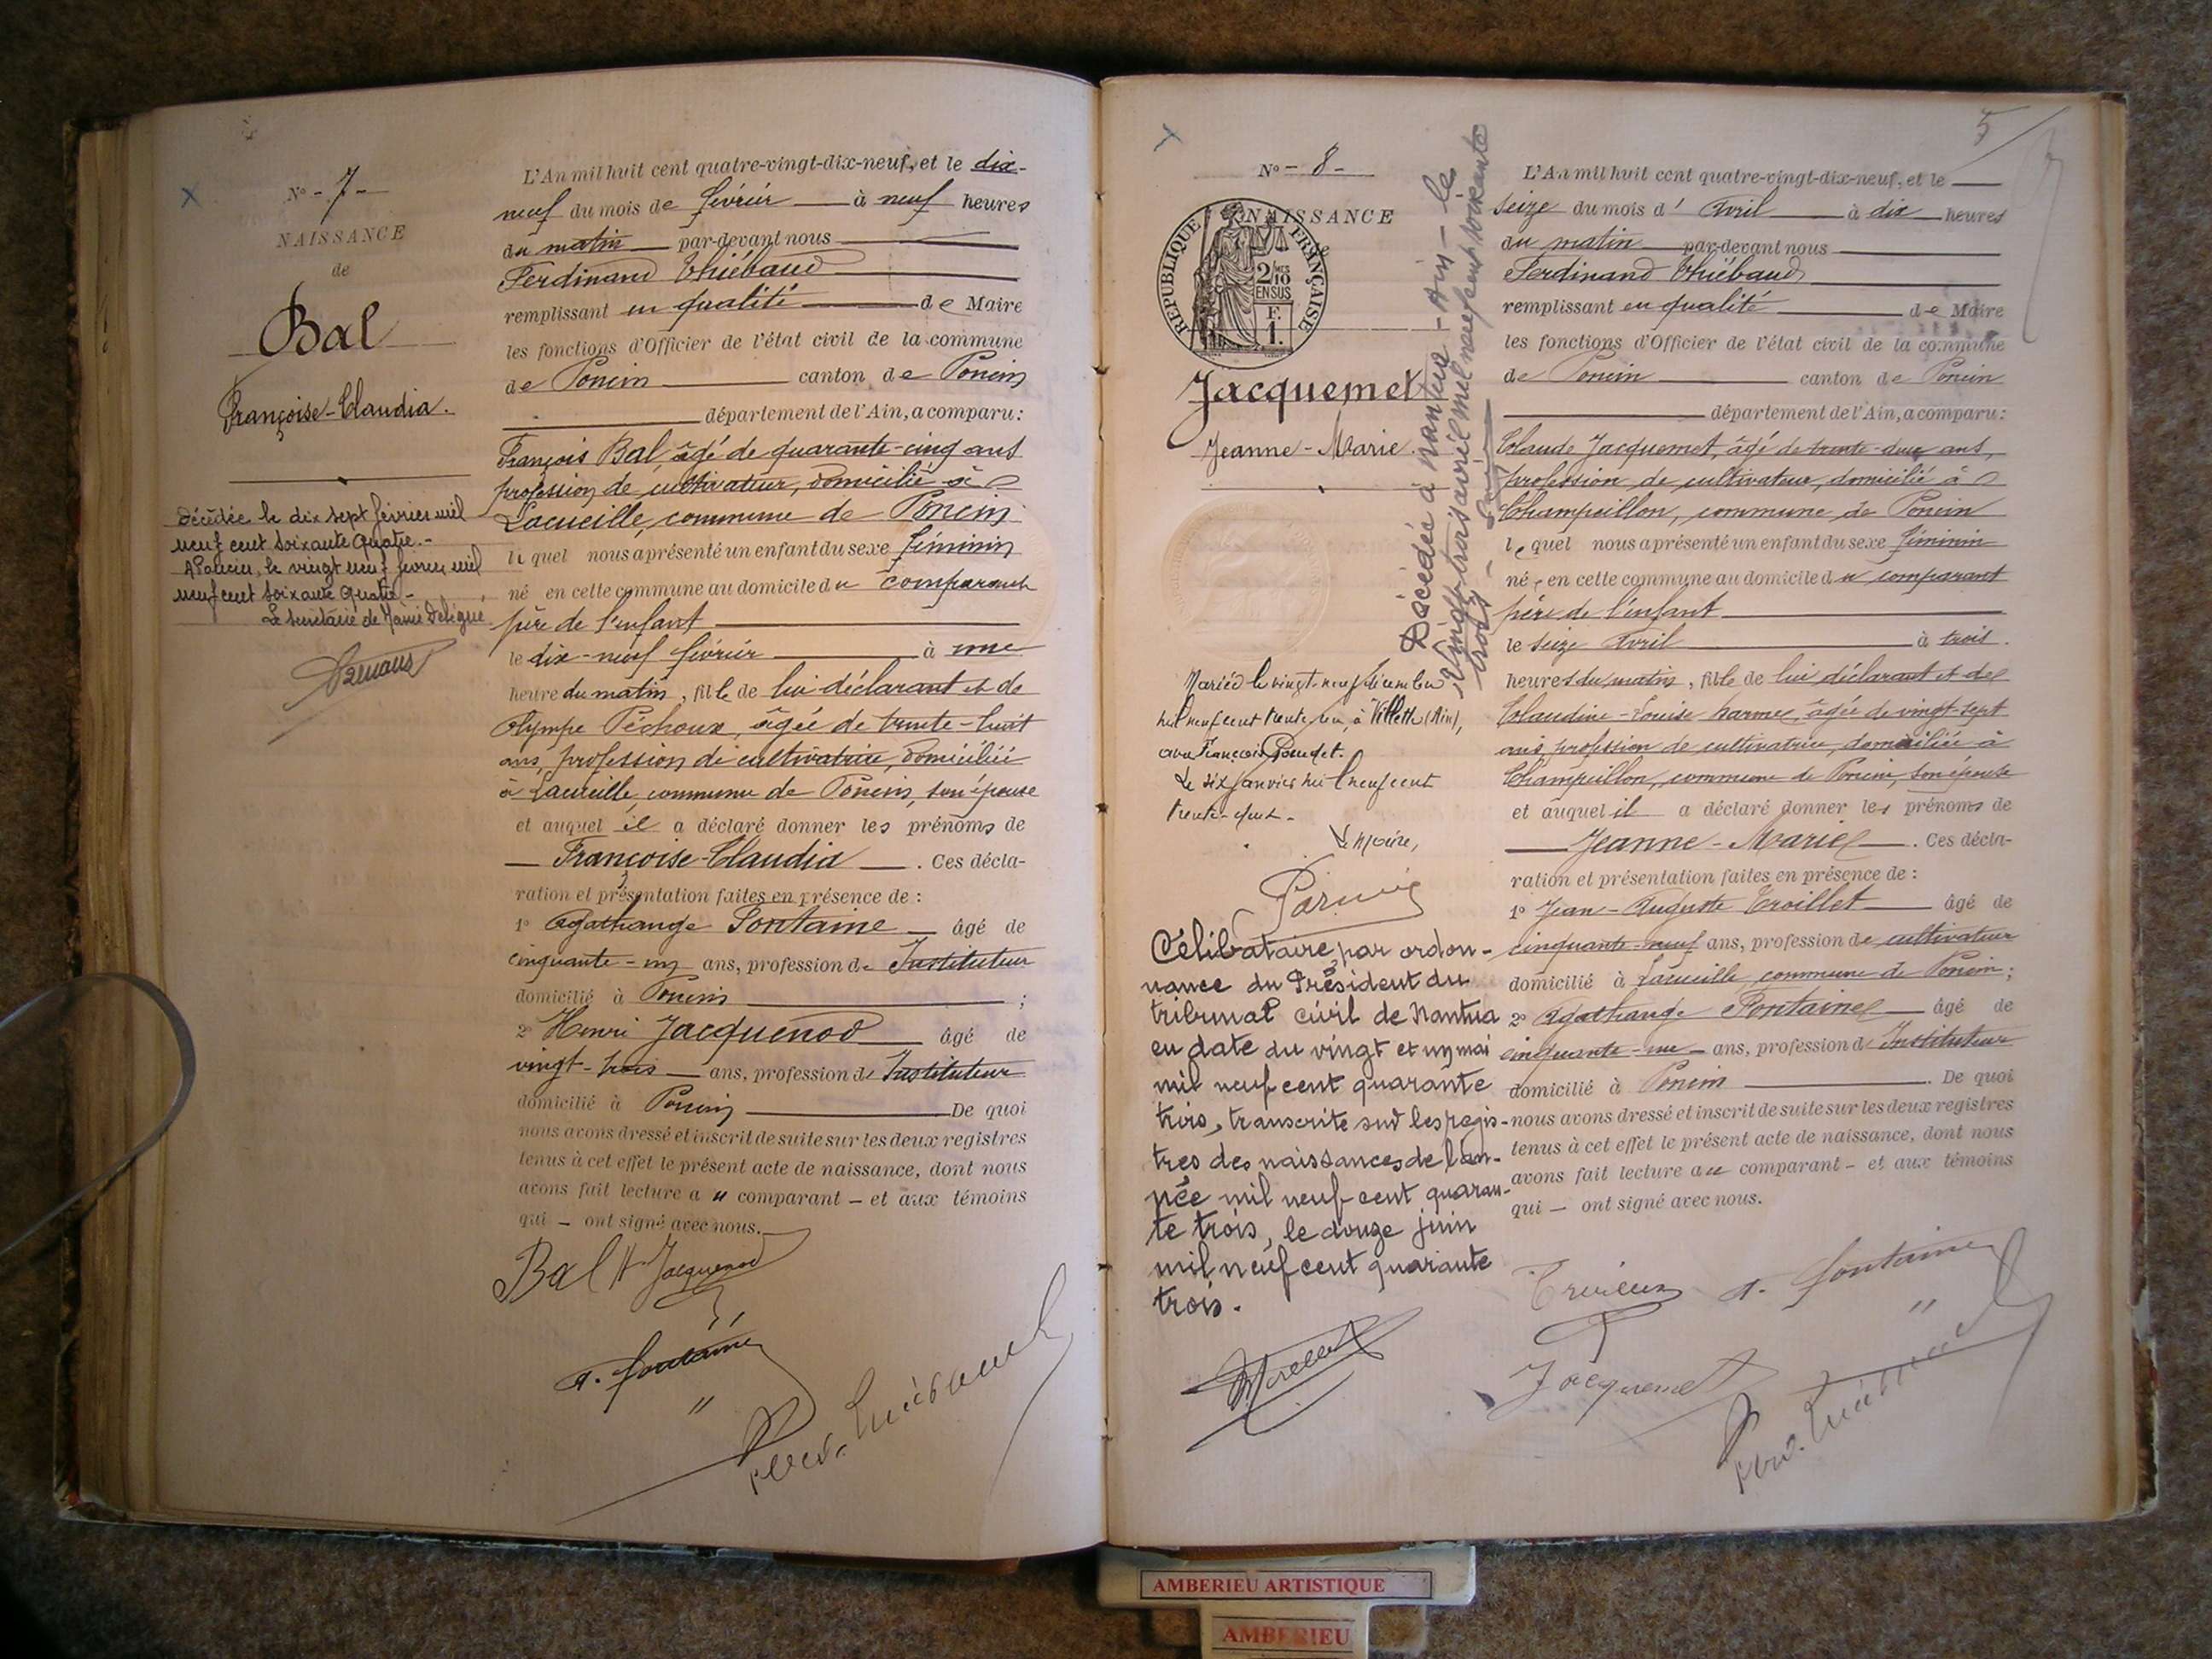 N° - 7 -
NAISSANCE
de
Bal
Françoise-Claudia.
Décédée le dix sept février mil
neuf cent soixante quatre.-
A Poncin, le vingt neuf février mil
neuf cent soixante quatre -
Le secrétaire de Mairie Délégué
L'An mil huit cent quatre-vingt-dix-neuf, et le dix-
neuf du mois de février à neuf heures
du matin par-devant nous
Ferdinand Thiébaud
remplissant en qualité de Maire
les fonctions d'Officier de l'état civil de la commune
de Poncin canton de Poncin
département de l'Ain, a comparu:
François Bal, âgé de quarante-cinq ans
profession de cultivateur, domicilié à
Lacueille, commune de Poncin
lequel nous a présenté un enfant du sexe féminin
né en cette commune au domicile du comparant
père de l'enfant
le dix-neuf février à une
heure du matin, fille de lui déclarant et de
Olympe Péchoux, âgée de trente-huit
ans, profession de cultivatrice, domiciliée
à Lacueille, commune de Poncin, son épouse
et auquel il a déclaré donner les prénoms de
Françoise-Claudia. Ces décla-
ration et présentation faites en présence de :
1° Agathange Fontaine âgé de
cinquante-un ans, profession de Instituteur
domicilié à Poncin ;
2° Henri Jacquenod âgé de
vingt-trois ans, profession de Instituteur
domicilié à Poncin De quoi
nous avons dressé et inscrit de suite sur les deux registres
tenus à cet effet le présent acte de naissance, dont nous
avons fait lecture au comparant - et aux témoins
qui - ont signé avec nous.
Bal H Jacquenod
A. Fontaine
Ferd. Thiébaud
5
N° - 8 -
NAISSANCE
RÉPUBLIQUE FRANÇAISE
2/10
EN SUS
F.
1.
Jacquemet
Jeanne-Marie.
Décédée à Nantua - Ain - le
vingt-trois avril mil neuf cent soixante
trois -
Mariée le vingt-neuf décembre
mil neuf cent trente un, à Villette (Ain),
avec François Goudet.
Le six Janvier mil neuf cent
trente-deux -
Le Maire,
Célibataire, par ordon-
nance du Président du
tribunal civil de Nantua
en date du vingt et un mai
mil neuf cent quarante
trois, transcrite sur les regis-
tres des naissances de l'an-
née mil neuf cent quaran-
te trois, le douze juin
mil neuf cent quarante
trois.
L'An mil huit cent quatre-vingt-dix-neuf, et le
seize du mois d'Avril à dix heures
du matin par-devant nous
Ferdinand Thiébaud
remplissant en qualité de Maire
les fonctions d'Officier de l'état civil de la commune
de Poncin canton de Poncin
département de l'Ain, a comparu:
Claude Jacquemet, âgé de trente-deux ans,
profession de cultivateur, domicilié à
Champeillon, commune de Poncin
lequel nous a présenté un enfant du sexe féminin
né, en cette commune au domicile du comparant
père de l'enfant
le seize Avril à trois.
heures du matin, fille de lui déclarant et de
Claudine-Louise Marmel, âgée de vingt-sept
ans, profession de cultivatrice, domiciliée à
Champeillon, commune de Poncin, son épouse
et auquel il a déclaré donner les prénoms de
Jeanne-Marie. Ces décla-
ration et présentation faites en présence de :
1° Jean-Auguste Troillet âgé de
cinquante-neuf ans, profession de cultivateur
domicilié à Lacueille, commune de Poncin;
2° Agathange Fontaine âgé de
cinquante-un ans, profession d Instituteur
domicilié à Poncin. De quoi
nous avons dressé et inscrit de suite sur les deux registres
tenus à cet effet le présent acte de naissance, dont nous
avons fait lecture au comparant - et aux témoins
qui - ont signé avec nous.
A. Fontaine
Jacquemet
Ferd. Thiébaud
AMBERIEU ARTISTIQUE
AMBERIEU